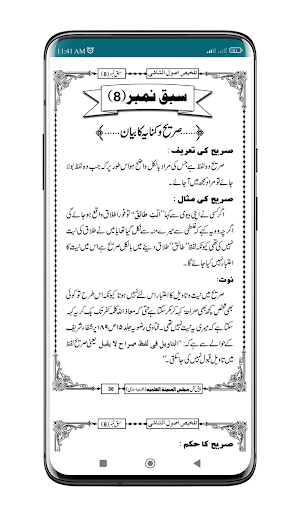 11:41 AM
تلخیص اصول الشاشی
سبق نمبر (8)
سبق نمبر (8)
صریح و کنایہ کا بیان
صریح کی تعریف :
صریح وہ لفظ ہے جس کی مراد بالکل واضح ہو اس طور پر کہ جب وہ لفظ بولا
جائے تو مراد سمجھ میں آ جائے۔
صریح کی مثال :
اگر کسی نے اپنی بیوی سے کہا ”اَنْتِ طَالِقٌ“ تو فورا طلاق واقع ہو جائے گی
اگرچہ وہ یہ کہے کہ غلطی سے میرے منہ سے نکل گیا تھا یا میں نے طلاق کی نیت
نہیں کی تھی کیونکہ لفظ ”طالق“ طلاق دینے میں بالکل صریح ہے اس میں نیت کا
اعتبار نہیں کیا جائے گا۔
نوٹ:
صریح میں نیت و تاویل کا اعتبار اس لئے نہیں ہوتا کیونکہ اس طرح تو کوئی
بھی شخص کچھ بھی صراحۃ کہہ کر مکر سکتا ہے حتی کہ معاذ اللہ کلمہ کفر تک بک کر یہ کہہ
سکتا ہے کہ میری یہ نیت نہیں تھی۔ فتاوی رضویہ جلد ۱۵ ص ۱۸۹ پر شفا شریف
کے حوالے سے ہے کہ: ”التاویل فی لفظ صراح لا یقبل یعنی صریح لفظ
میں تاویل قبول نہیں کی جا سکتی۔“
مجلس المدینۃ العلمیہ
38
تلخیص اصول الشاشی
سبق نمبر (8)
صریح کا حکم :